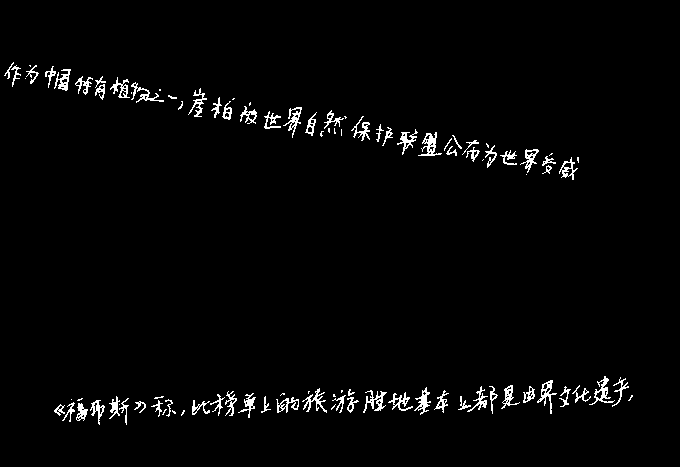 作为中国特有植物之一,崖柏被世界自然保护联盟公布为世界受威
《福布斯》称,此榜单上的旅游胜地基本上都是世界文化遗产,